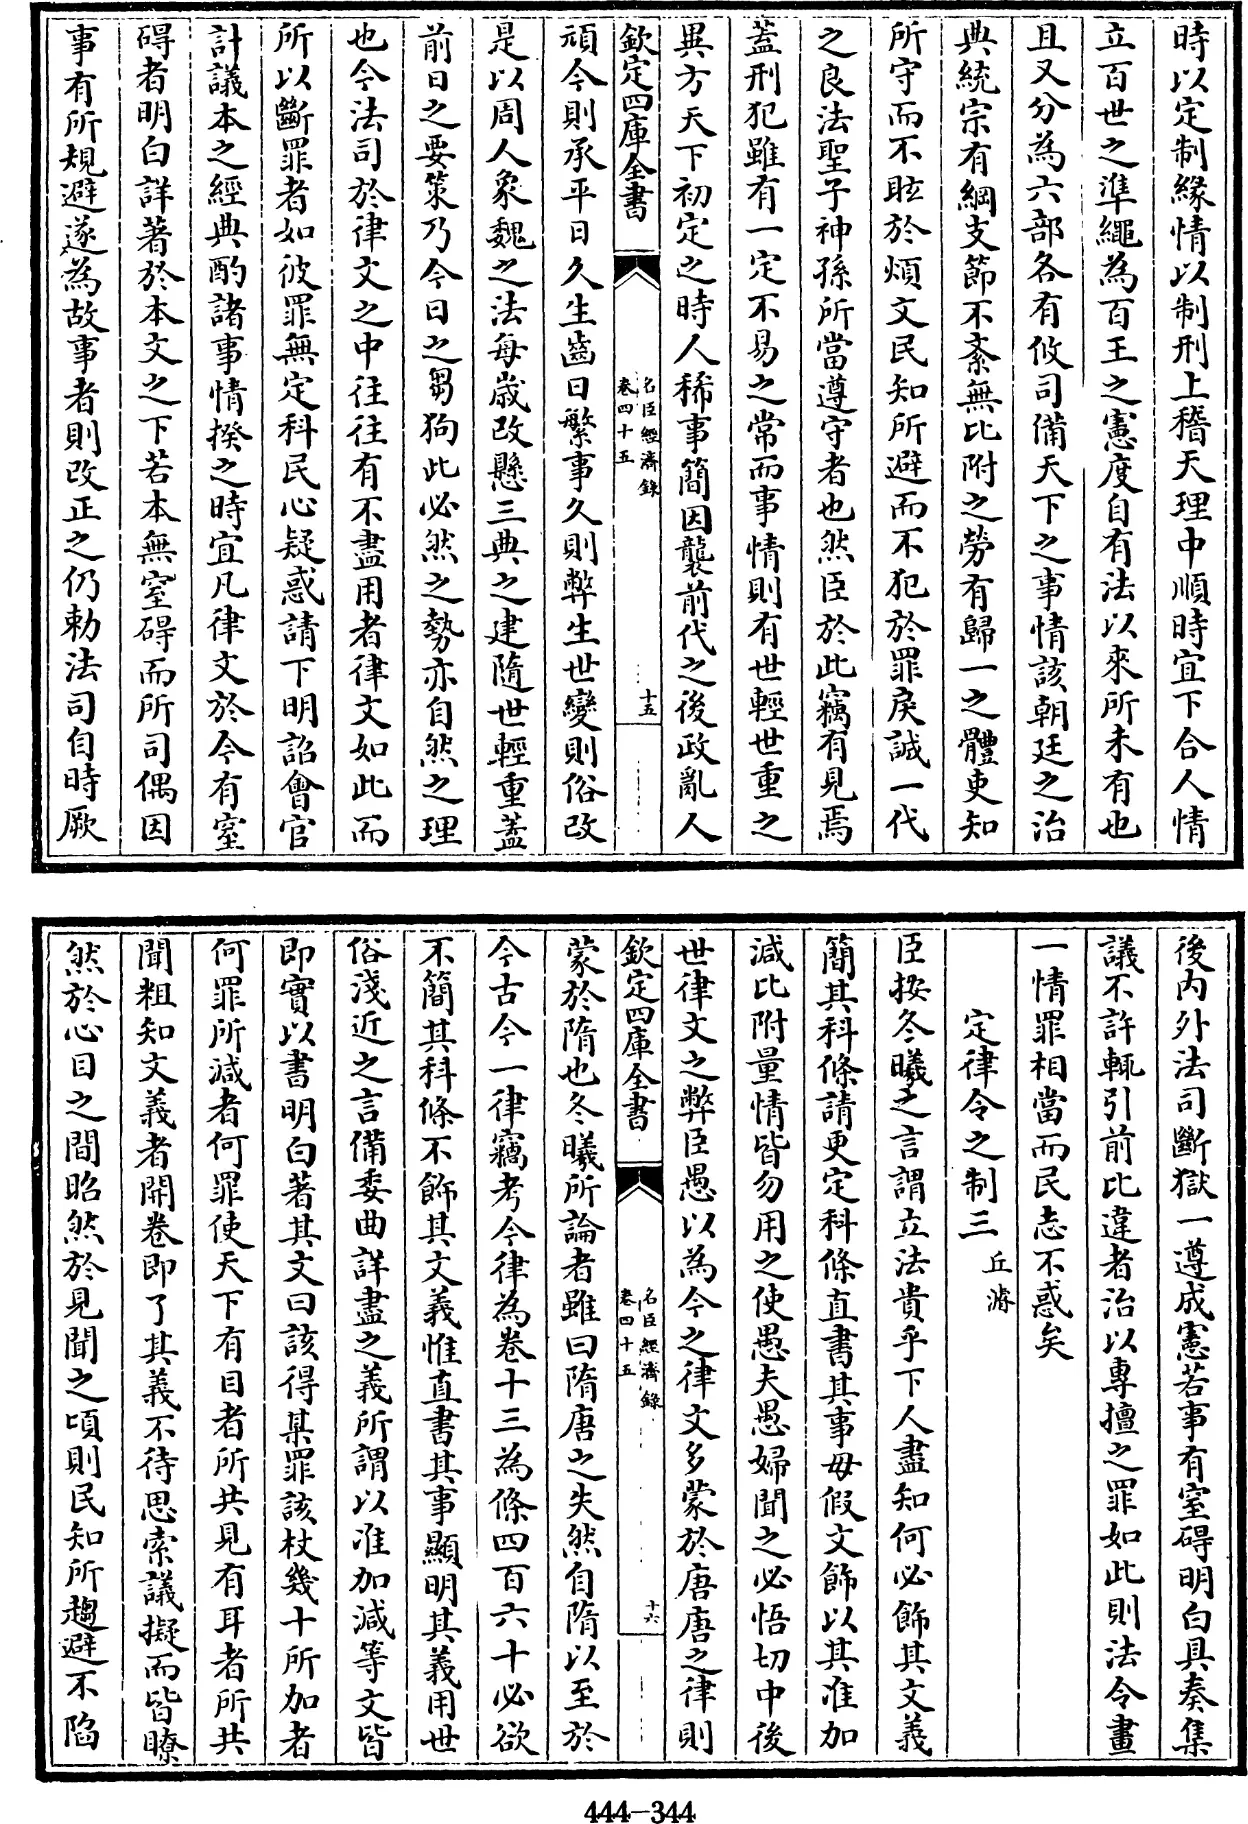 時以定制緣情以制刑上稽天理中順時宜下合人情
立百世之準繩為百王之憲度自有法以來所未有也
且又分為六部各有攸司備天下之事情該朝廷之治
典統宗有綱支節不紊無比附之勞有歸一之體吏知
所守而不眩於煩文民知所避而不犯於罪戾誠一代
之良法聖子神孫所當遵守者也然臣於此竊有見焉
蓋刑犯雖有一定不易之常而事情則有世輕世重之
異方天下初定之時人稀事簡因襲前代之後政亂人
欽定四庫全書
名臣經濟錄
卷四十五
十五
頑今則承平日久生齒日繁事久則弊生世變則俗改
是以周人象魏之法每歲改懸三典之建隨世輕重蓋
前日之要策乃今日之芻狗此必然之勢亦自然之理
也今法司於律文之中往往有不盡用者律文如此而
所以斷罪者如彼罪無定科民心疑惑請下明詔會官
計議本之經典酌諸事情揆之時宜凡律文於今有窒
碍者明白詳著於本文之下若本無窒碍而所司偶因
事有所規避遂為故事者則改正之仍勅法司自時厥
後內外法司斷獄一遵成憲若事有窒碍明白具奏集
議不許輒引前比違者治以專擅之罪如此則法令畫
一情罪相當而民志不惑矣
定律令之制三 丘濬
臣按冬曦之言謂立法貴乎下人盡知何必飾其文義
簡其科條請更定科條直書其事毋假文飾以其准加
減比附量情皆勿用之使愚夫愚婦聞之必悟切中後
世律文之弊臣愚以為今之律文多蒙於唐唐之律則
欽定四庫全書
名臣經濟錄
卷四十五
十六
蒙於隋也冬曦所論者雖曰隋唐之失然自隋以至於
今古今一律竊考今律為卷十三為條四百六十必欲
不簡其科條不飾其文義惟直書其事顯明其義用世
俗淺近之言備委曲詳盡之義所謂以准加減等文皆
即實以書明白著其文曰該得某罪該杖幾十所加者
何罪所減者何罪使天下有目者所共見有耳者所共
聞粗知文義者開卷即了其義不待思索議擬而皆瞭
然於心目之間昭然於見聞之頃則民知所趨避不陷
444-344